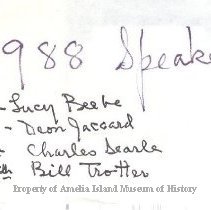 1988 Speake
- Lucy Beebe
- Deon Jaccard
- Charles Searle
Bill Trotter
Property of Amelia Island Museum of History